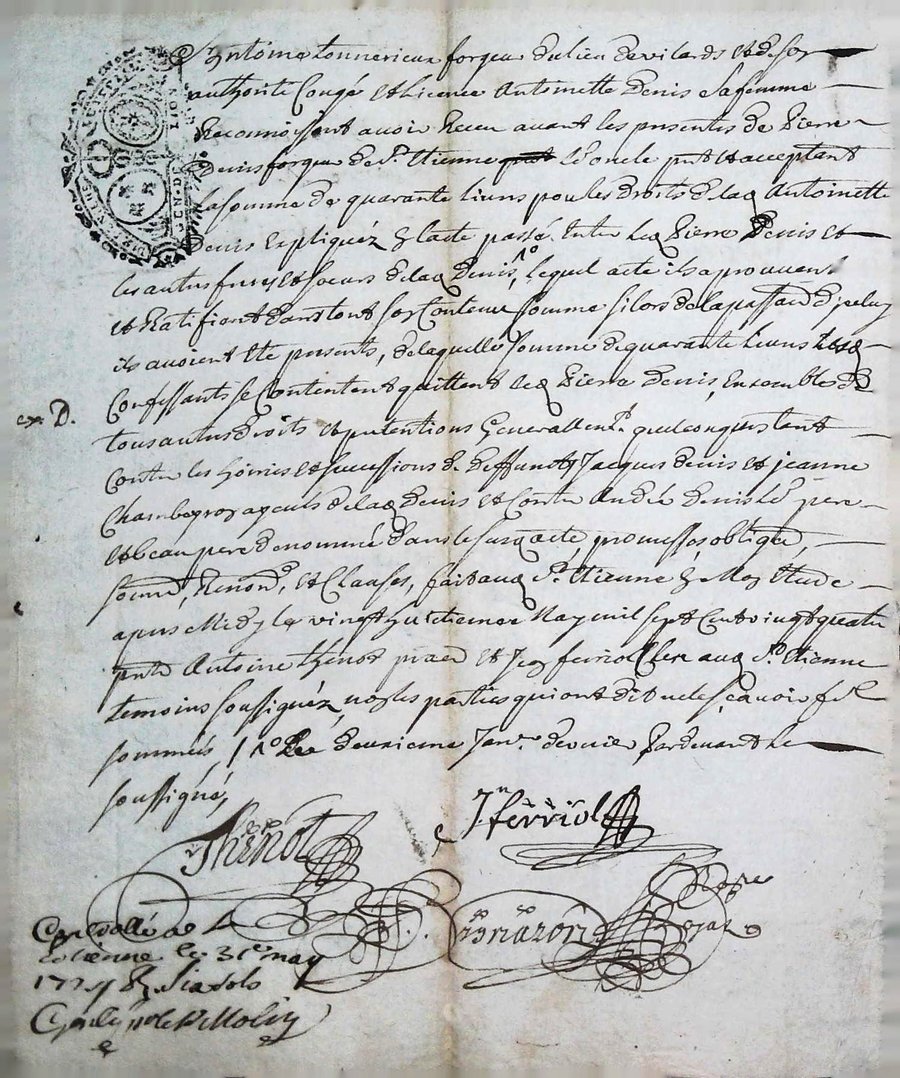 Antoine tonnerieux forgeur du lieu de vilards et de son
authorité Congé et licence Antoinette Denis sa femme
Reconnoissent avoir Receu avant les presentes de Pierre
Denis forgeur de St. Etienne l'oncle pnt et acceptant
La somme de quarante livres pour les Droits de lad Antoinette
Denis Expliquéz En l'acte passé Entre led Pierre Denis et
les autres freres et soeurs de lad Denis, lequel acte ils aprouvent
et Ratifient dans tout son Contenu Comme si lors de la passaon d'iceluy
ils avoient ete presents, de laquelle somme de quarante livres lesd
Confessants se Contentent quittent led Pierre Denis, Ensemble de
ex. D.
tous autres droits et pretentions Generallemt. quelconques tant
Contre les hoiries et successions de deffuncts Jacques denis et jeanne
Chambeyron ayeuls de lad Denis et Contre André Denis leur pere
et beau pere denommé dans le susd acte, promesses, oblige,
soumd, Renond, et Clauses, fait aud St. Etienne En Mon Etude
apres Midy le vingt huictieme May mil sept Cent vingt quatre
pnts Antoine thenot et Jean ferriol Clerc aud St. Etienne
temoins soussignéz, non les parties qui ont dit ne le sçavoir
sommées, / 1° Le deuxieme Janv. dernier Pardevant le
soussigné,
Thenot
Jn ferriol
Briazon
Controllé a St
Etienne le 31e may
1724 R six sols